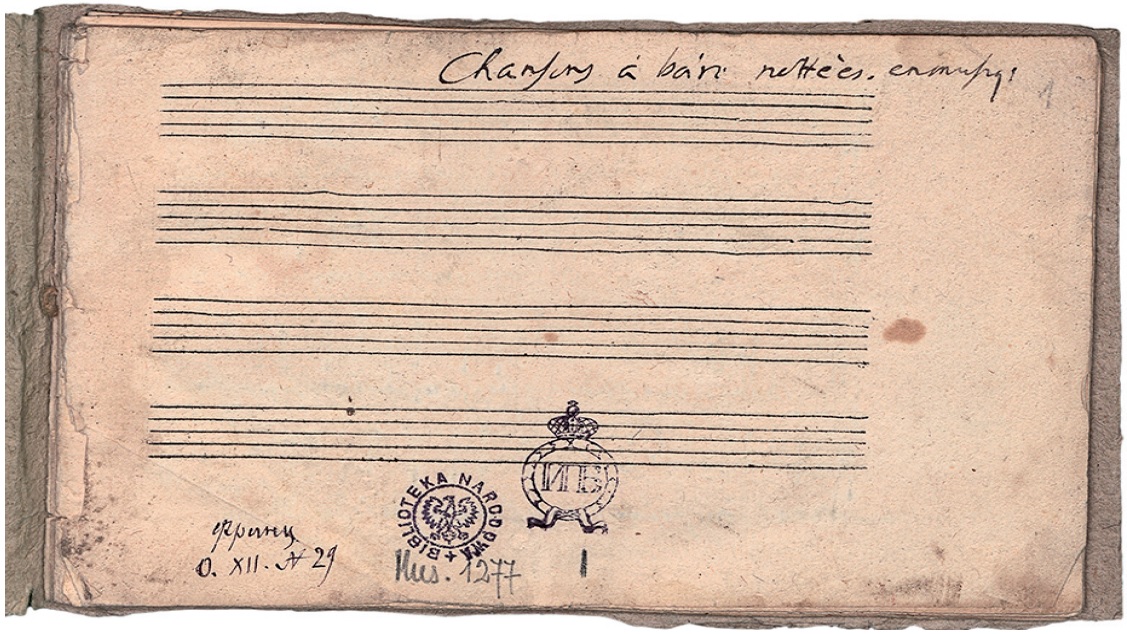 Chansons à boire nottées. en musq:
1
ИПБ
BIBLIOTEKA NARODOWA
Франц
O. XII. N 29
Mus. 1277
1